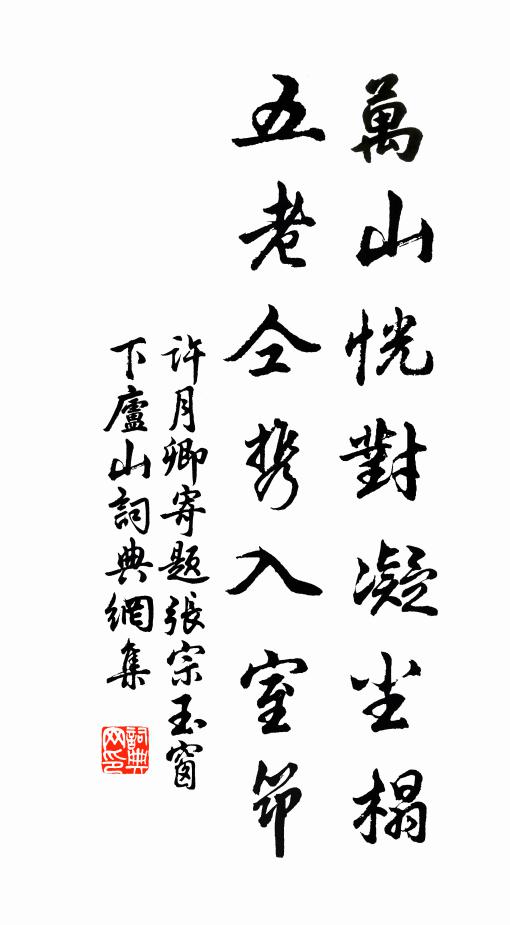 萬山恍對凝尘榻
五老仝携入室笻
许月卿寄题張宗玉窗
下廬山詞典網集
詞典网印